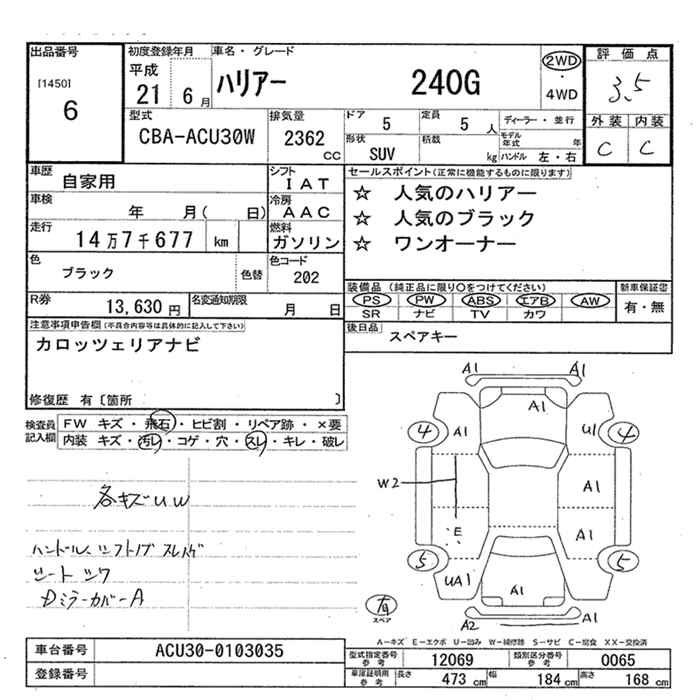 出品番号
[1450]
6
初度登録年月
平成
21 6月
車名・グレード
ハリアー 240G
2WD
・
4WD
評価点
3.5
外装 内装
C C
型式
CBA-ACU30W
排気量
2362
CC
ドア 5
定員 5人
形状
SUV
積載
kg
ディーラー・並行
モデル年式 年
ハンドル 左・右
車歴
自家用
シフト
IAT
車検
年 月( 日)
冷房
AAC
走行
14万7千677 km
燃料
ガソリン
色
ブラック
色替
色コード
202
R券
13,630円
名変通知期限
月 日
セールスポイント(正常に機能するものに限ります)
☆ 人気のハリアー
☆ 人気のブラック
☆ ワンオーナー
装備品 (純正品に限り○をつけてください)
PS PW ABS エアB AW
SR ナビ TV カワ
新車保証書
有・無
後日品
スペアキー
注意事項申告欄(不具合内容等は具体的に記入して下さい)
カロッツェリアナビ
修復歴 有〔箇所 〕
検査員
記入欄
FW キズ・飛石・ヒビ割・リペア跡・×要
内装 キズ・汚レ・コゲ・穴・スレ・キレ・破レ
各キズUW
ハンドル、シフトノブ スレハゲ
シート シワ
Dミラーカバー A
A1 A1
A1
4 A1 U1 4
W2 A1
E A1
5 5
UA1 A1
有
スペア
A2 A1
A-キズ E-エクボ U-凹み W-補修跡 S-サビ C-腐食 XX-交換済
車台番号
ACU30-0103035
登録番号
型式指定番号
参考
12069
類別区分番号
参考
0065
車庫証明用
参考
長さ 473 cm
幅 184 cm
高さ 168 cm